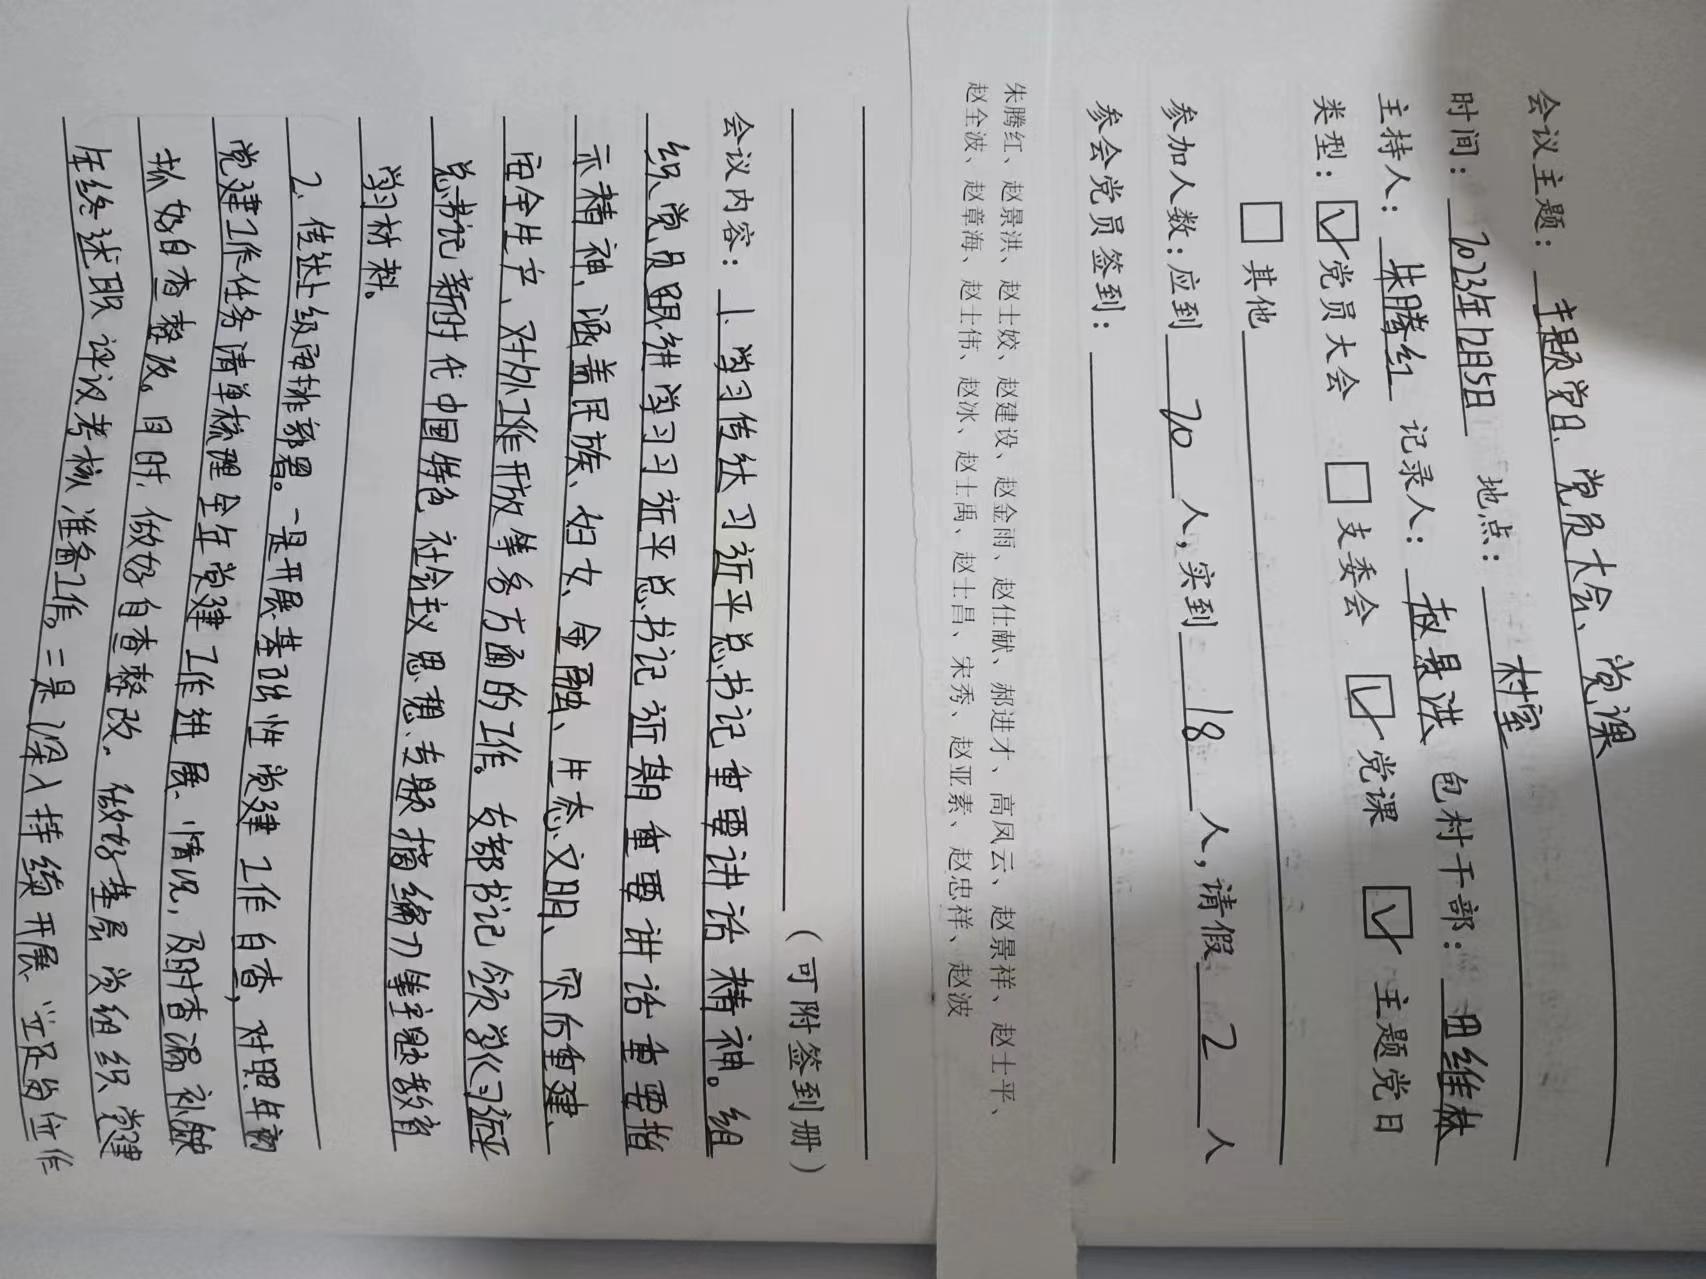 会议主题：主题党日、党员大会、党课
时间：2023年12月5日 地点：村室
主持人：朱腾红 记录人：赵景洪 包村干部：田维林
类型：☑党员大会 □支委会 ☑党课 ☑主题党日
□其他
参加人数：应到 20 人，实到 18 人，请假 2 人
参会党员签到：
朱腾红、赵景洪、赵士姣、赵建设、赵金雨、赵仕献、郝进才、高凤云、赵景祥、赵士平、
赵全波、赵章海、赵士伟、赵冰、赵士禹、赵士昌、宋秀、赵亚素、赵忠祥、赵波
（可附签到册）
会议内容：1、学习传达习近平总书记重要讲话精神。组
织党员跟进学习习近平总书记近期重要讲话重要指
示精神，涵盖民族、妇女、金融、生态文明、灾后重建、
安全生产、对外工作开放等多方面的工作。支部书记领学《习近平
总书记新时代中国特色社会主义思想、专题摘编》等主题教育
学习材料。
2、传达上级安排部署。一是开展基础性党建工作自查，对照年初
党建工作任务清单梳理全年党建工作进展情况，及时查漏补缺
抓好自查整改。目时，做好自查整改。做好基层党组织党建
年终述职评议考核准备工作。二是深入持续开展“立足岗位作